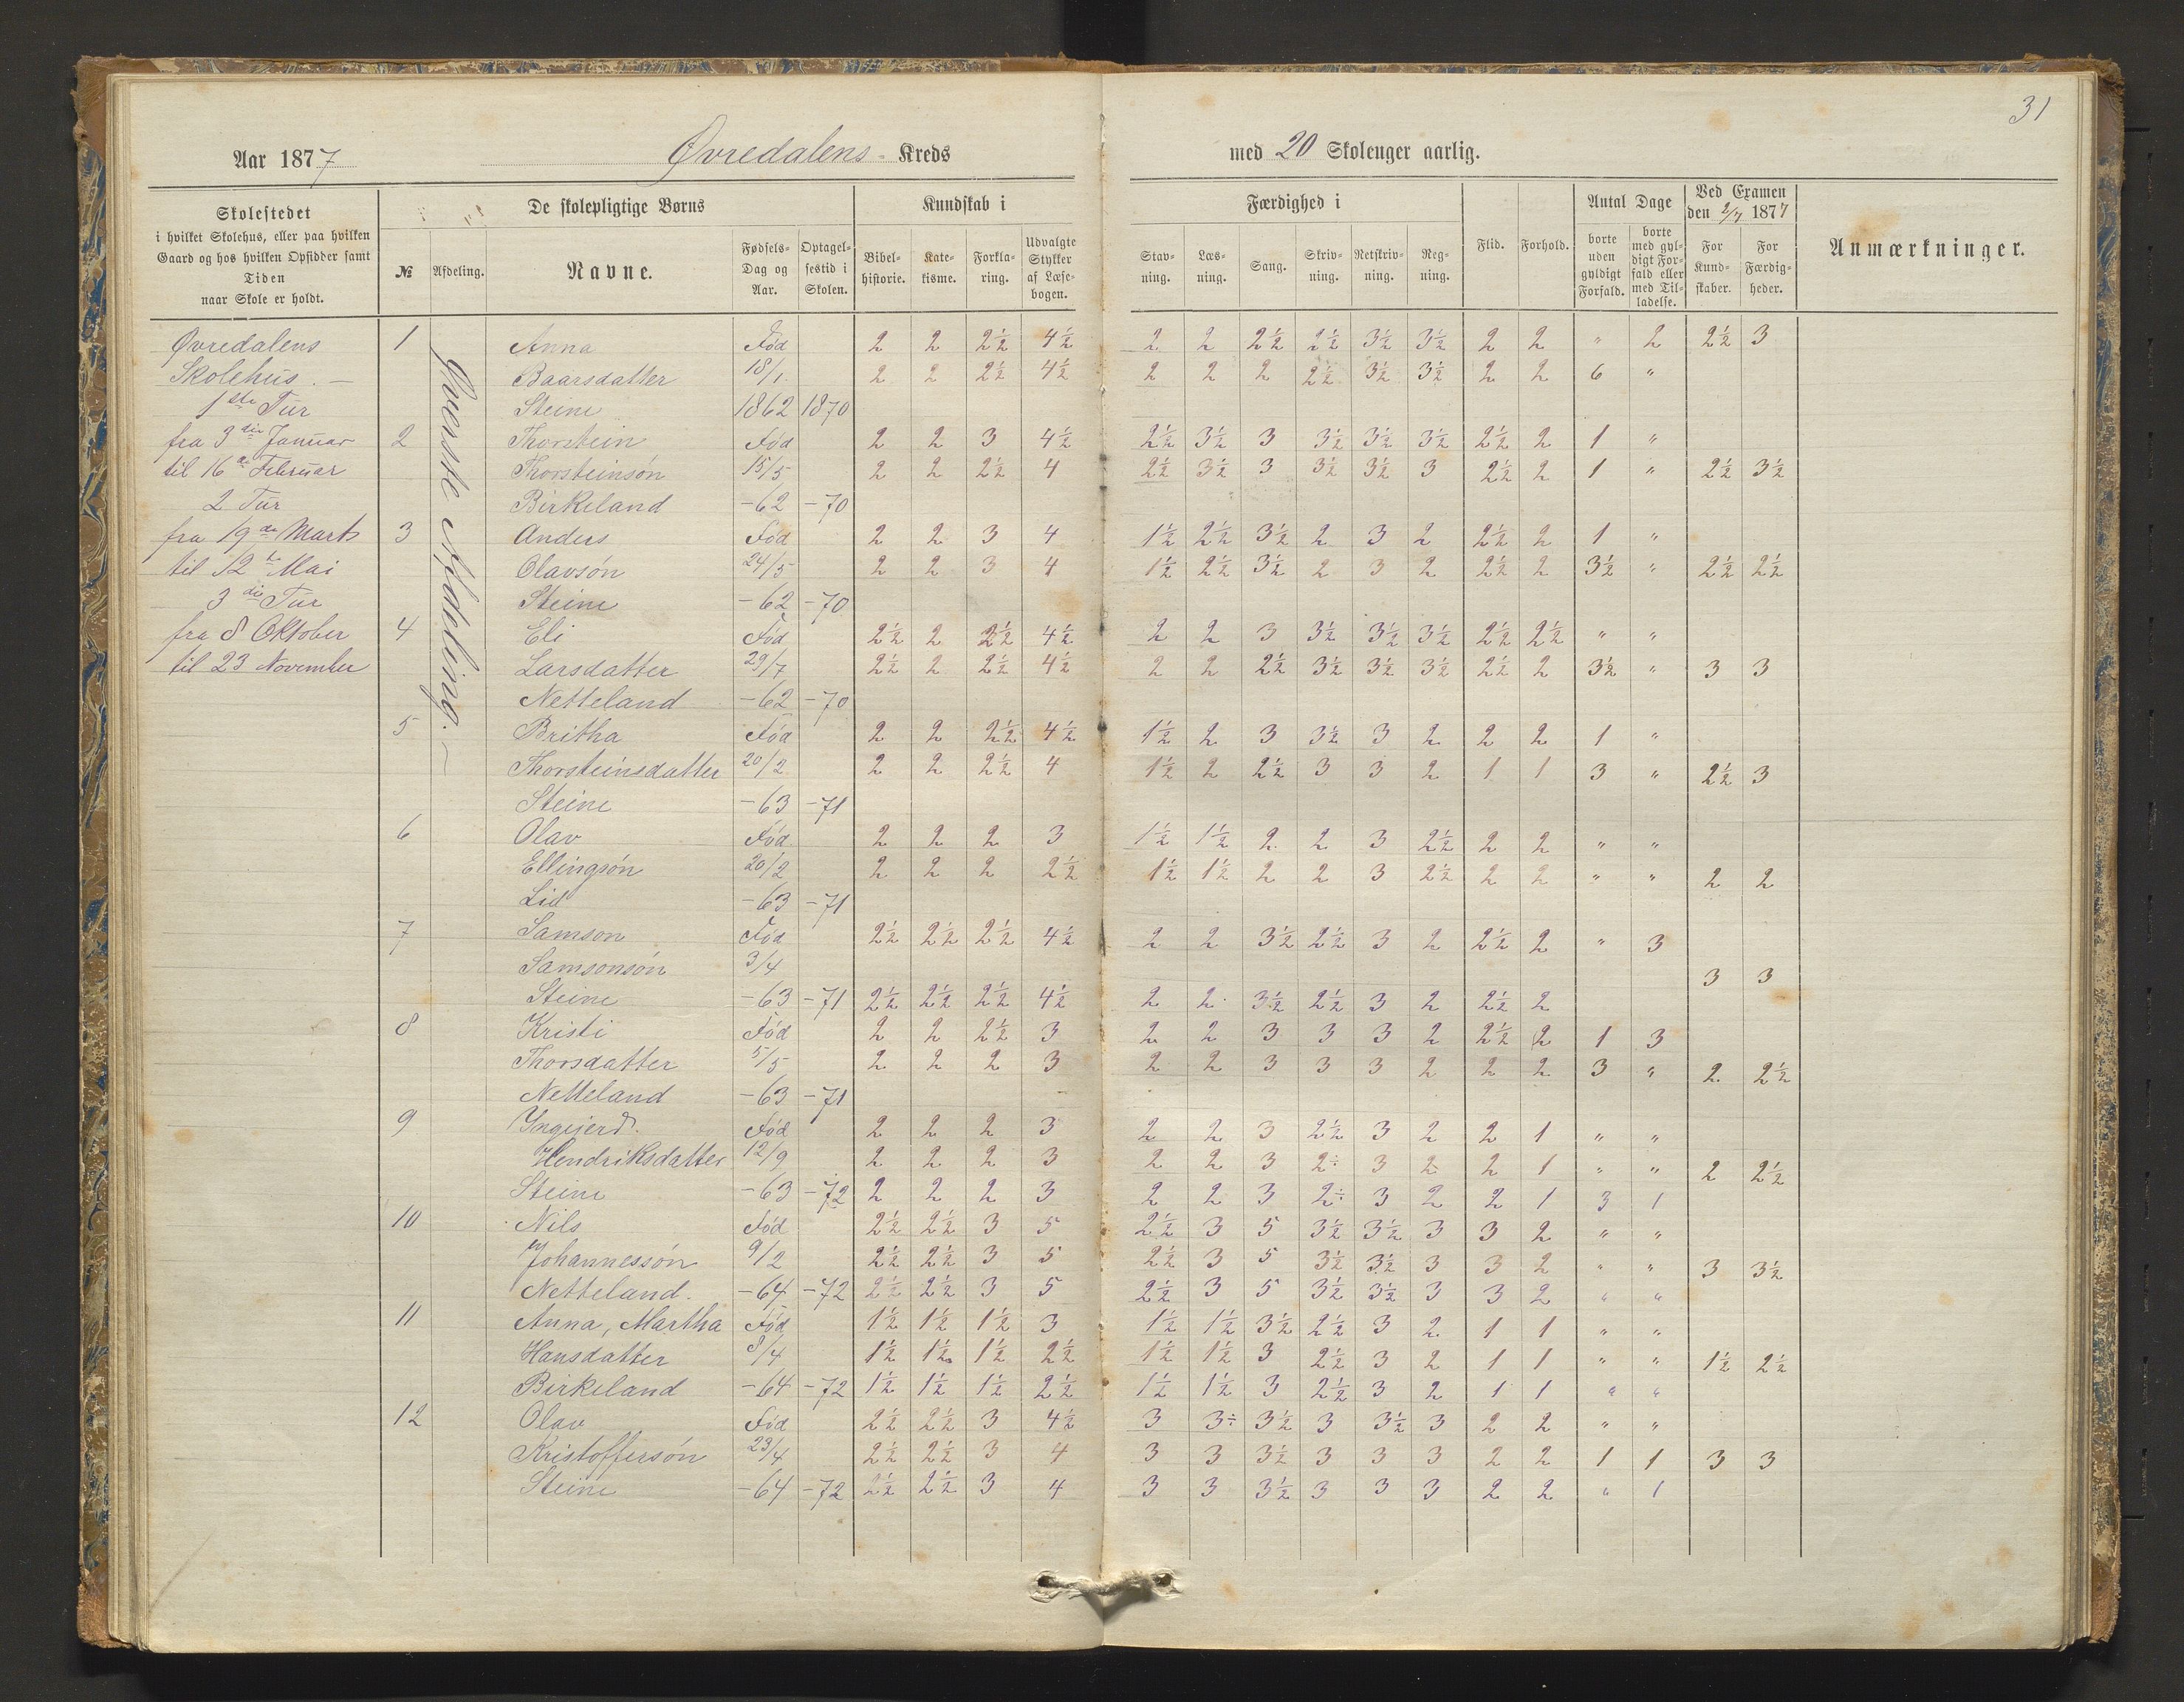 31
Aar 1877 Øvredalens Kreds med 20 Skoleuger aarlig.
Skolestedet
i hvilket Skolehus, eller paa hvilken
Gaard og hos hvilken Opsidder samt
Tiden
naar Skole er holdt.
De skolepligtige Børns
№ Afdeling. Navne. Fødsels-Dag og Aar. Optagelsestid i Skolen.
Kundskab i
Bibelhistorie. Katekisme. Forklaring. Udvalgte Stykker af Læsebogen.
Færdighed i
Stavning. Læsning. Sang. Skrivning. Retskrivning. Regning.
Flid. Forhold.
Antal Dage
borte uden gyldigt Forfald. borte med gyldigt Forfald eller med Tilladelse.
Ved Examen
den 2/7 1877
For Kundskaber. For Færdigheder.
Anmærkninger.
Øvredalens
Skolehus. —
1ste Tur
fra 3die Januar
til 16de Februar
2 Tur
fra 19de Marts
til 12te Mai
3die Tur
fra 8 Oktober
til 23 November
Øverste Afdeling. —
1 Anna Fød 2 2 2½ 4½ 2 2 2½ 2½ 3½ 3½ 2 2 " 2 2½ 3
Baarsdatter 18/1. 2 2 2½ 4½ 2 2 2 2½ 3½ 3½ 2 2 6 "
Steine 1862 1870
2 Thorstein Fød 2 2 3 4½ 2½ 3½ 3 3½ 3½ 3½ 2½ 2 1 "
Thorsteinsøn 15/5 2 2 2½ 4 2½ 3½ 3 3½ 3½ 3 2½ 2 1 " 2½ 3½
Birkeland -62 -70
3 Anders Fød 2 2 3 4 1½ 2½ 3½ 2 3 2 2½ 2 1 "
Olavsøn 24/5 2 2 3 4 1½ 2½ 3½ 2 3 2 2½ 2 3½ " 2½ 2½
Steine -62 -70
4 Eli Fød 2½ 2 2½ 4½ 2 2 3 3½ 3½ 3½ 2½ 2½ " "
Larsdatter 29/7 2½ 2 2½ 4½ 2 2 2½ 3½ 3½ 3½ 2½ 2 3½ " 3 3
Netteland -62 -70
5 Britha Fød 2 2 2½ 4½ 1½ 2 3 3½ 3 2 2 2 1 "
Thorsteinsdatter 20/2 2 2 2½ 4 1½ 2 2½ 3 3 2 1 1 3 " 2½ 3
Steine -63 -71
6 Olav Fød. 2 2 2 3 1½ 1½ 2 2 3 2½ 2 2 " "
Ellingsøn 20/2 2 2 2 2½ 1½ 1½ 2 2 3 2½ 2 2 " " 2 2
Lid -63 -71
7 Samson Fød 2½ 2½ 2½ 4½ 2 2 3½ 2½ 3 2 2½ 2 " 3
Samsonsøn 3/4 3 3
Steine -63 -71 2½ 2½ 2½ 4½ 2 2 3½ 2½ 3 2 2½ 2
8 Kristi Fød 2 2 2½ 3 2 2 3 3 3 2 2½ 2 1 3
Thorsdatter 5/5 2 2 2 3 2 2 3 3 3 2 2 2 3 " 2 2½
Netteland -63 -71
9 Yngjerd. Fød 2 2 2 3 2 2 3 2½ 3 2 2 1 " "
Hendriksdatter 12/9 2 2 2 3 2 2 3 2÷ 3 2 2 1 " " 2 2½
Steine -63 -72 2 2 2 3 2 2 3 2÷ 3 2 2 1 3 1
10 Nils Fød 2½ 2½ 3 5 2½ 3 5 3½ 3½ 3 3 2 " "
Johannessøn 9/2 2½ 2½ 3 5 2½ 3 5 3½ 3½ 3 3 2 " " 3 3½
Netteland. -64 -72 2½ 2½ 3 5 2½ 3 5 3½ 3½ 3 3 2 " "
11 Anna, Martha Fød 1½ 1½ 1½ 3 1½ 1½ 3½ 2½ 3 2 1 1 " "
Hansdatter 8/4 1½ 1½ 1½ 2½ 1½ 1½ 3 2½ 3 2 1 1 " " 1½ 2½
Birkeland -64 -72 1½ 1½ 1½ 2½ 1½ 1½ 3 2½ 3 2 1 1 " "
12 Olav Fød 2½ 2½ 3 4½ 3 3÷ 3½ 3 3½ 3 2 2 " "
Kristoffersøn 23/4 2½ 2½ 3 4 3 3 3½ 3 3 3 2 2 1 1 3 3
Steine -64 -72 2½ 2½ 3 4 3 3 3½ 3 3 3 2 2 " 1